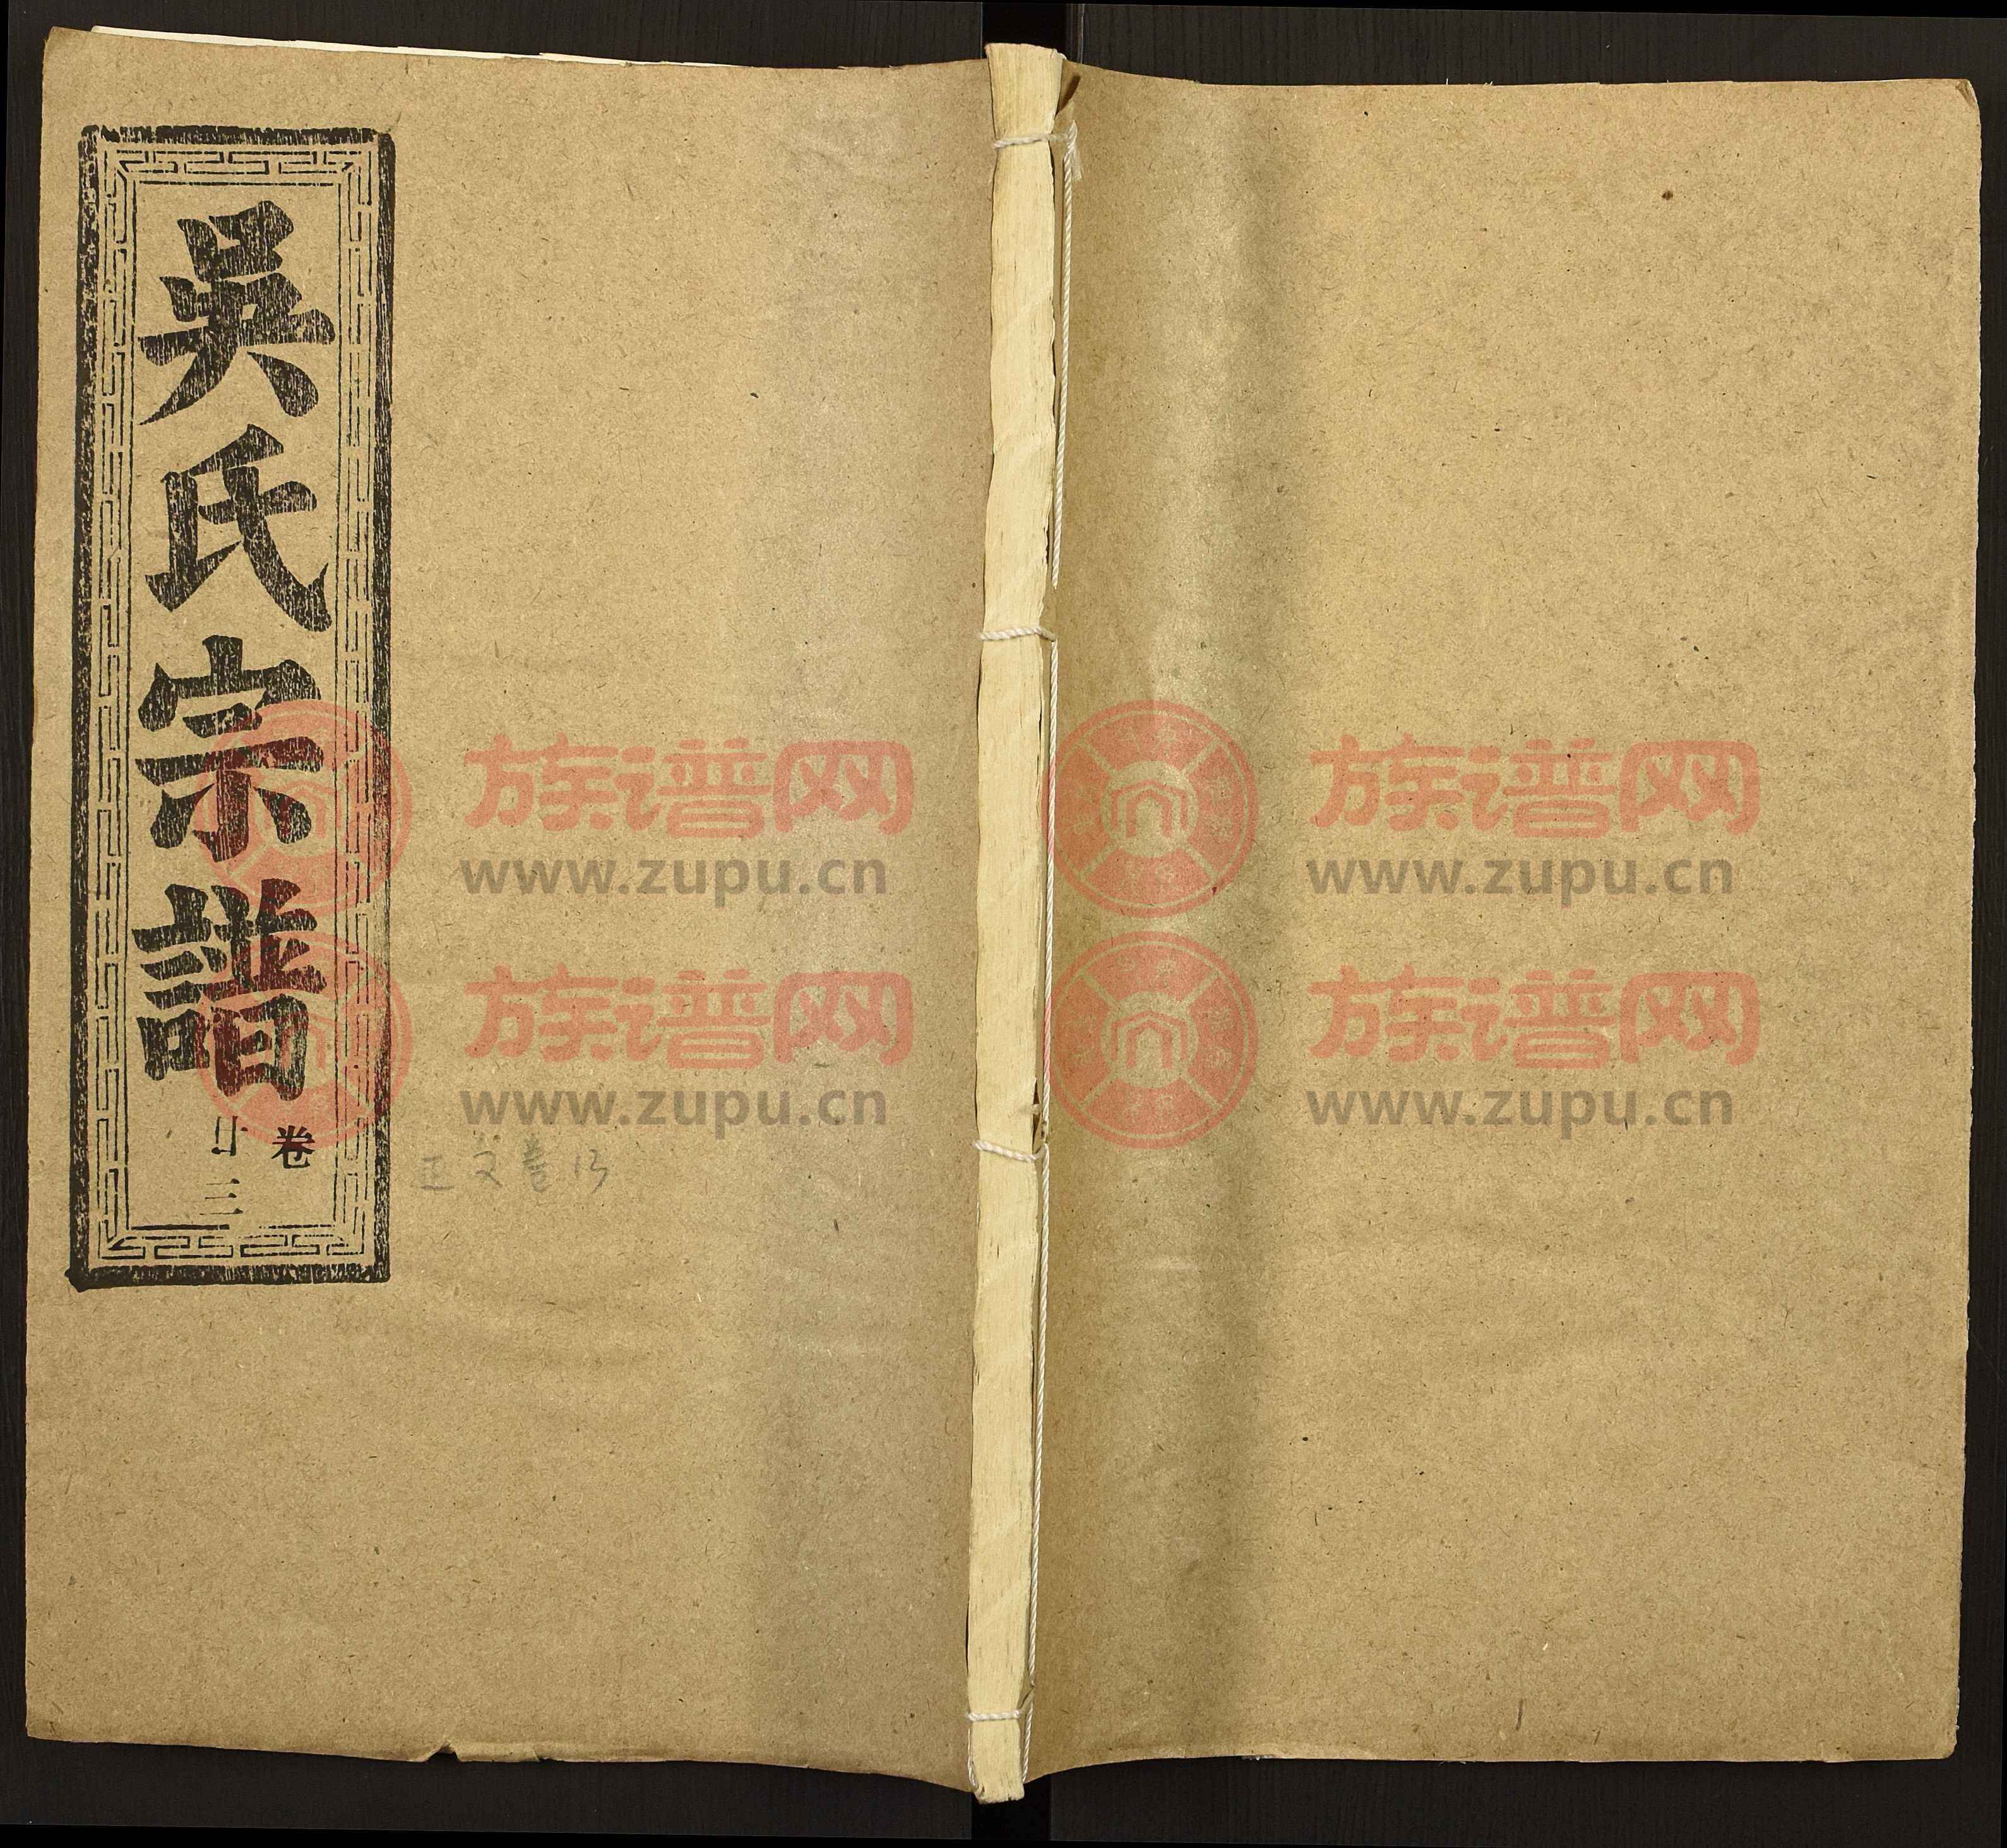 吳氏宗譜
卷
廿三
正文卷13
族谱网
www.zupu.cn
族谱网
www.zupu.cn
族谱网
www.zupu.cn
族谱网
www.zupu.cn